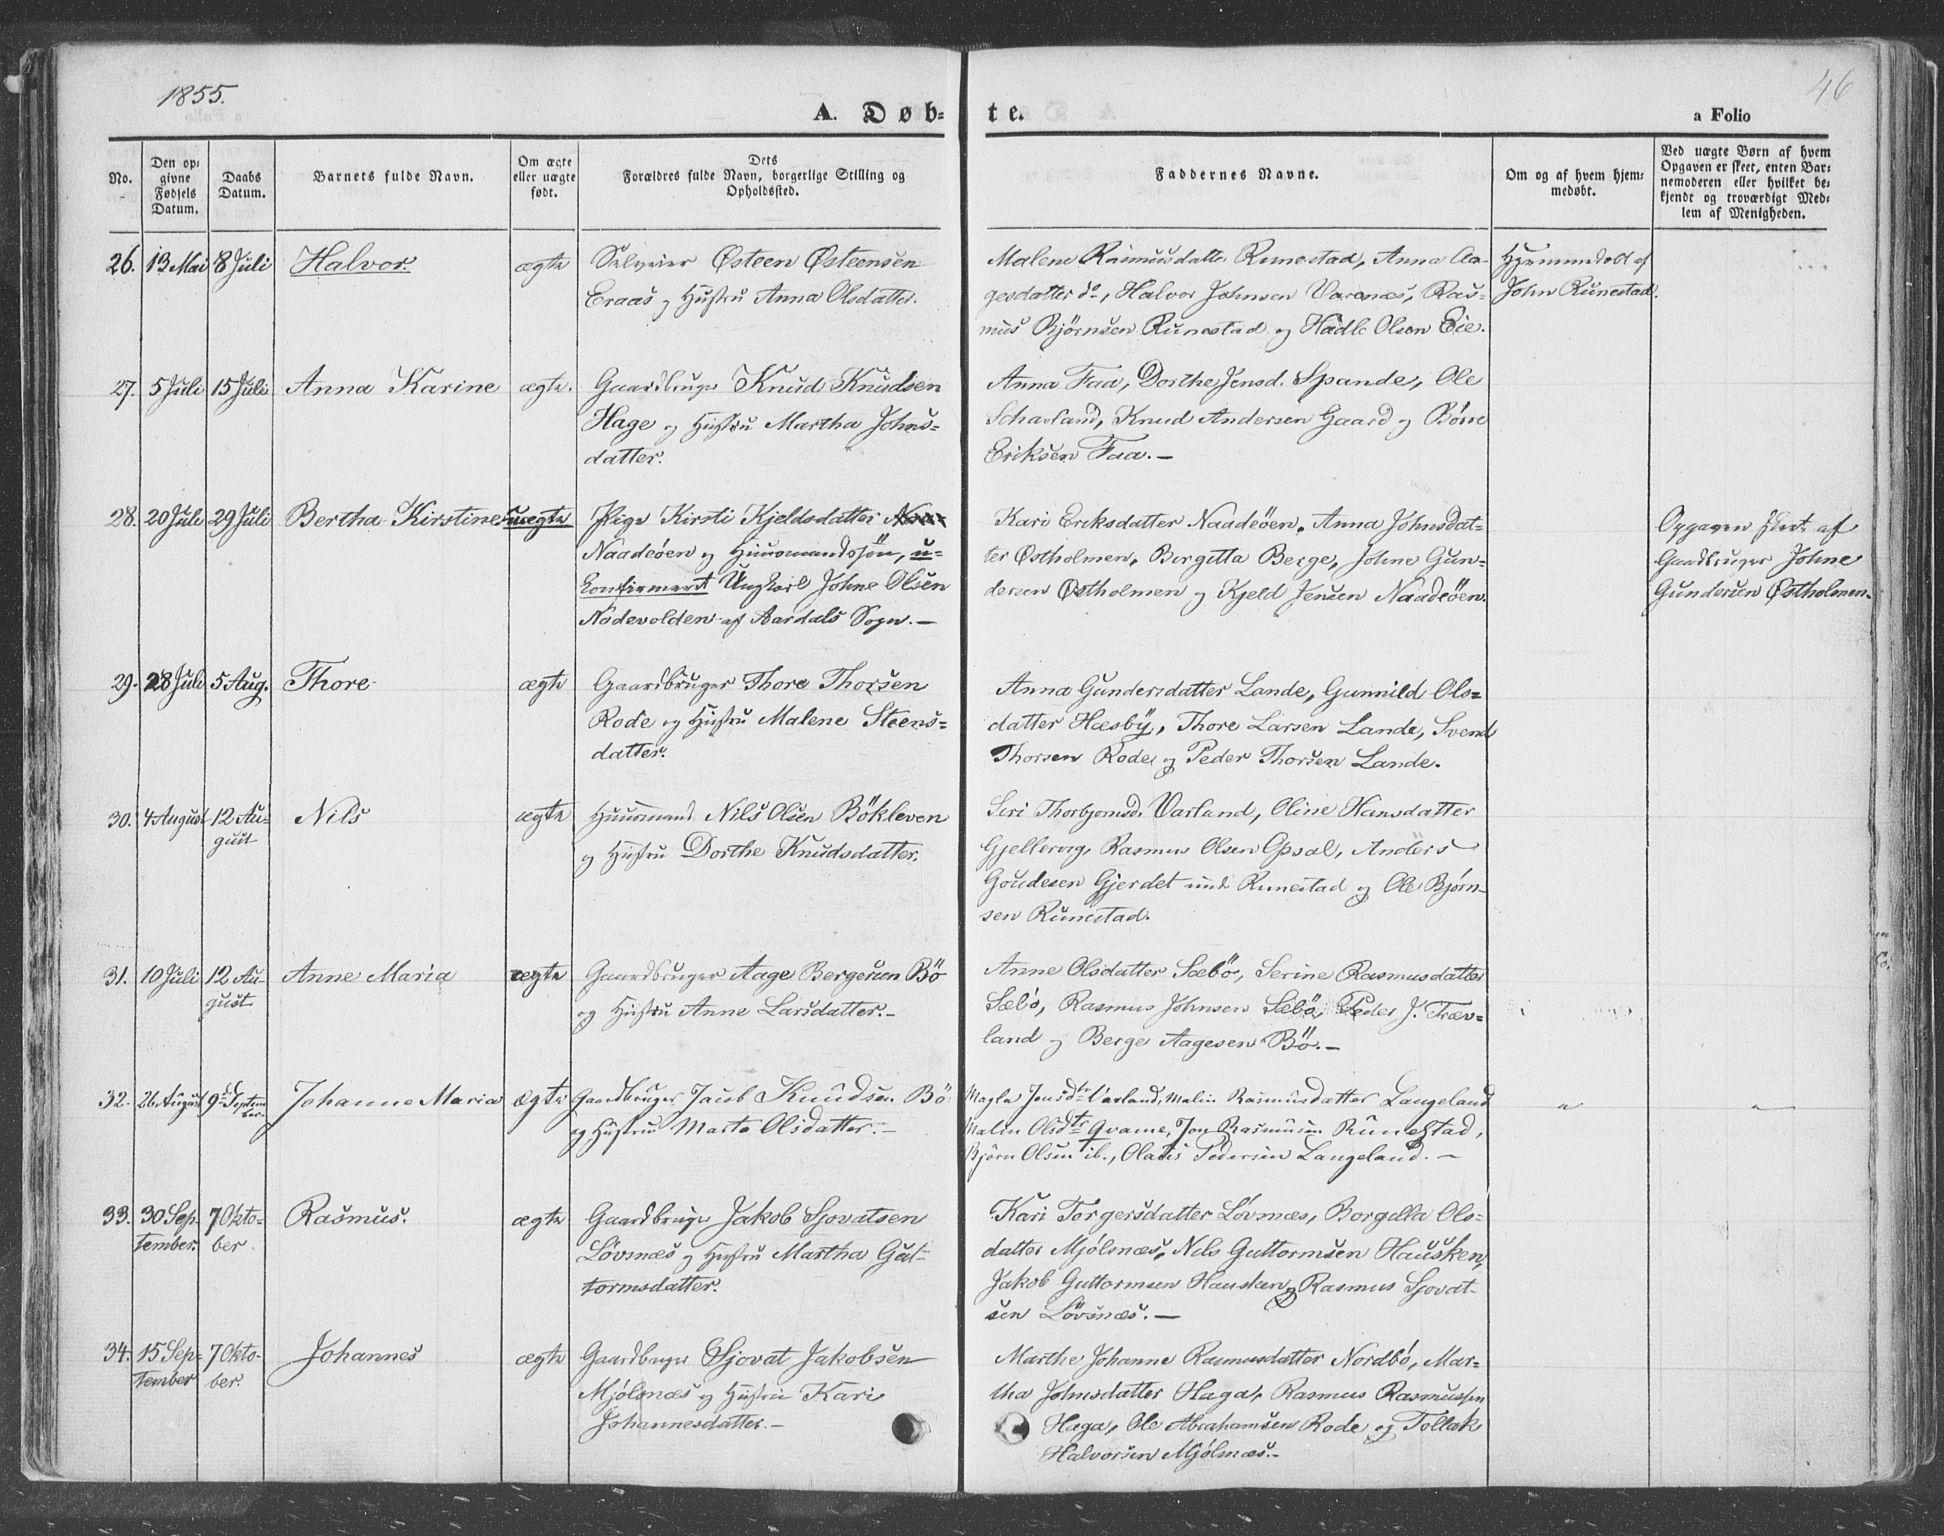 1855.
46
A. Døb=
te.
a Folio
No.
Den op=
givne
Fødsels
Datum.
Daabs
Datum.
Barnets fulde Navn.
Om ægte
eller uægte
født.
Dets
Forældres fulde Navn, borgerlige Stilling og
Opholdssted.
Faddernes Navne.
Om og af hvem hjem=
medøbt.
Ved uægte Børn af hvem
Opgaven er skeet, enten Bar=
nemoderen eller hvilket be=
kjendt og troværdigt Med=
lem af Menigheden.
26. 13 Mai 8 Juli Halvor. ægte
Selveier Østeen Østeensen
Eraas og Hustru Anna Olsdatter.
Malene Rasmusdatter Runestad, Anna Aa-
gesdatter do, Halvor Johnsen Varenæs, Ras=
mus Bjørnsen Runestad og Hadle Olsen Eie.
Hjemmedøbt af
John Runestad.
27. 5 Juli 15 Juli Anna Karine ægte.
Gaardbruger Knud Knudsen
Hage og Hustru Martha Johns=
datter.
Anna Faa, Dorthe Jensd. Spande, Ole
Scharland, Knud Andersen Gaard og Børre
Eriksen Faa.—
28. 20 Juli 29 Juli Bertha Kirstine uægte
Pige Kirsti Kjeldsdatter
Naadeöen og Huusmandssön, u=
konfirmeret Ungkarl Johne Olsen
Nödevolden af Aardals Sogn.—
Kari Eriksdatter Naadeöen, Anna Johnsdat=
ter Østholmen, Bergitta Berge, Johne Gun=
dersen Østholmen og Kjeld Jensen Naadeöen.
Opgaven skeet af
Gaardbruger Johne
Gundersen Østholmen.
29. 28 Juli 5 Aug. Thore ægte
Gaardbruger Thore Thorsen
Rode og Hustru Malene Steens=
datter.
Anna Gundersdatter Lande, Gunnild Ols=
datter Hæsby, Thore Larsen Lande, Svend
Thorsen Rode og Peder Thorsen Lande.
30. 4 August 12 Au=
gust
Nils ægte
Huusmand Nils Olsen Bökleven
og Hustru Dorthe Knudsdatter.
Seri Thorbjornsd. Varland, Oline Hansdatter
Gjellervig, Rasmus Olsen Opsal, Anders
Goudesen Gjerdet und. Runestad og Ole Bjørn-
sen Runestad.
31. 10 Juli 12 Au-
gust
Anne Maria ægte
Gaardbruger Aage Bergesen Bö
og Hustru Anne Larsdatter.—
Anne Olsdatter Sæbö, Serine Rasmusdatter
Sæbö, Rasmus Johnsen Sæbö, Peder J. Træv=
land og Berge Aagesen Bö.—
32. 26 August 9de Septem
ber.
Johanne Maria ægte
Gaardbruger Jacob Knudsen Bö
og Hustru Marta Olsdatter.—
Magla Jensdtr Varland, Malin Rasmusdatter Langeland
Malin Olsdtr Qvame, Jon Rasmusen Runestad,
Bjørn Olsen ib., Olaus Pedersen Langeland.—
" "
33. 30 Sep-
tember.
7 Okto-
ber.
Rasmus. ægte
Gaardbruger Jakob Sjovatsen
Lövnæs og Hustru Martha Gut-
tormsdatter.
Kari Torgersdatter Lövnæs, Borgella Ols=
datter Mjölsnæs, Nils Guttormsen Hausken,
Jakob Guttormsen Hausken og Rasmus Sjovat-
sen Lövsnæs.—
34. 15 Sep=
tember
7 Okto-
ber.
Johannes ægte
Gaardbruger Sjovat Jakobsen
Mjölsnæs og Hustru Kari
Johannesdatter.—
Marthe Johanne Rasmusdatter Nordbö, Mar=
tha Johnsdatter Haga, Rasmus Rasmussen
Haga, Ole Abrahamsen Rode og Tollak
Halvorsen Mjölsnæs.-